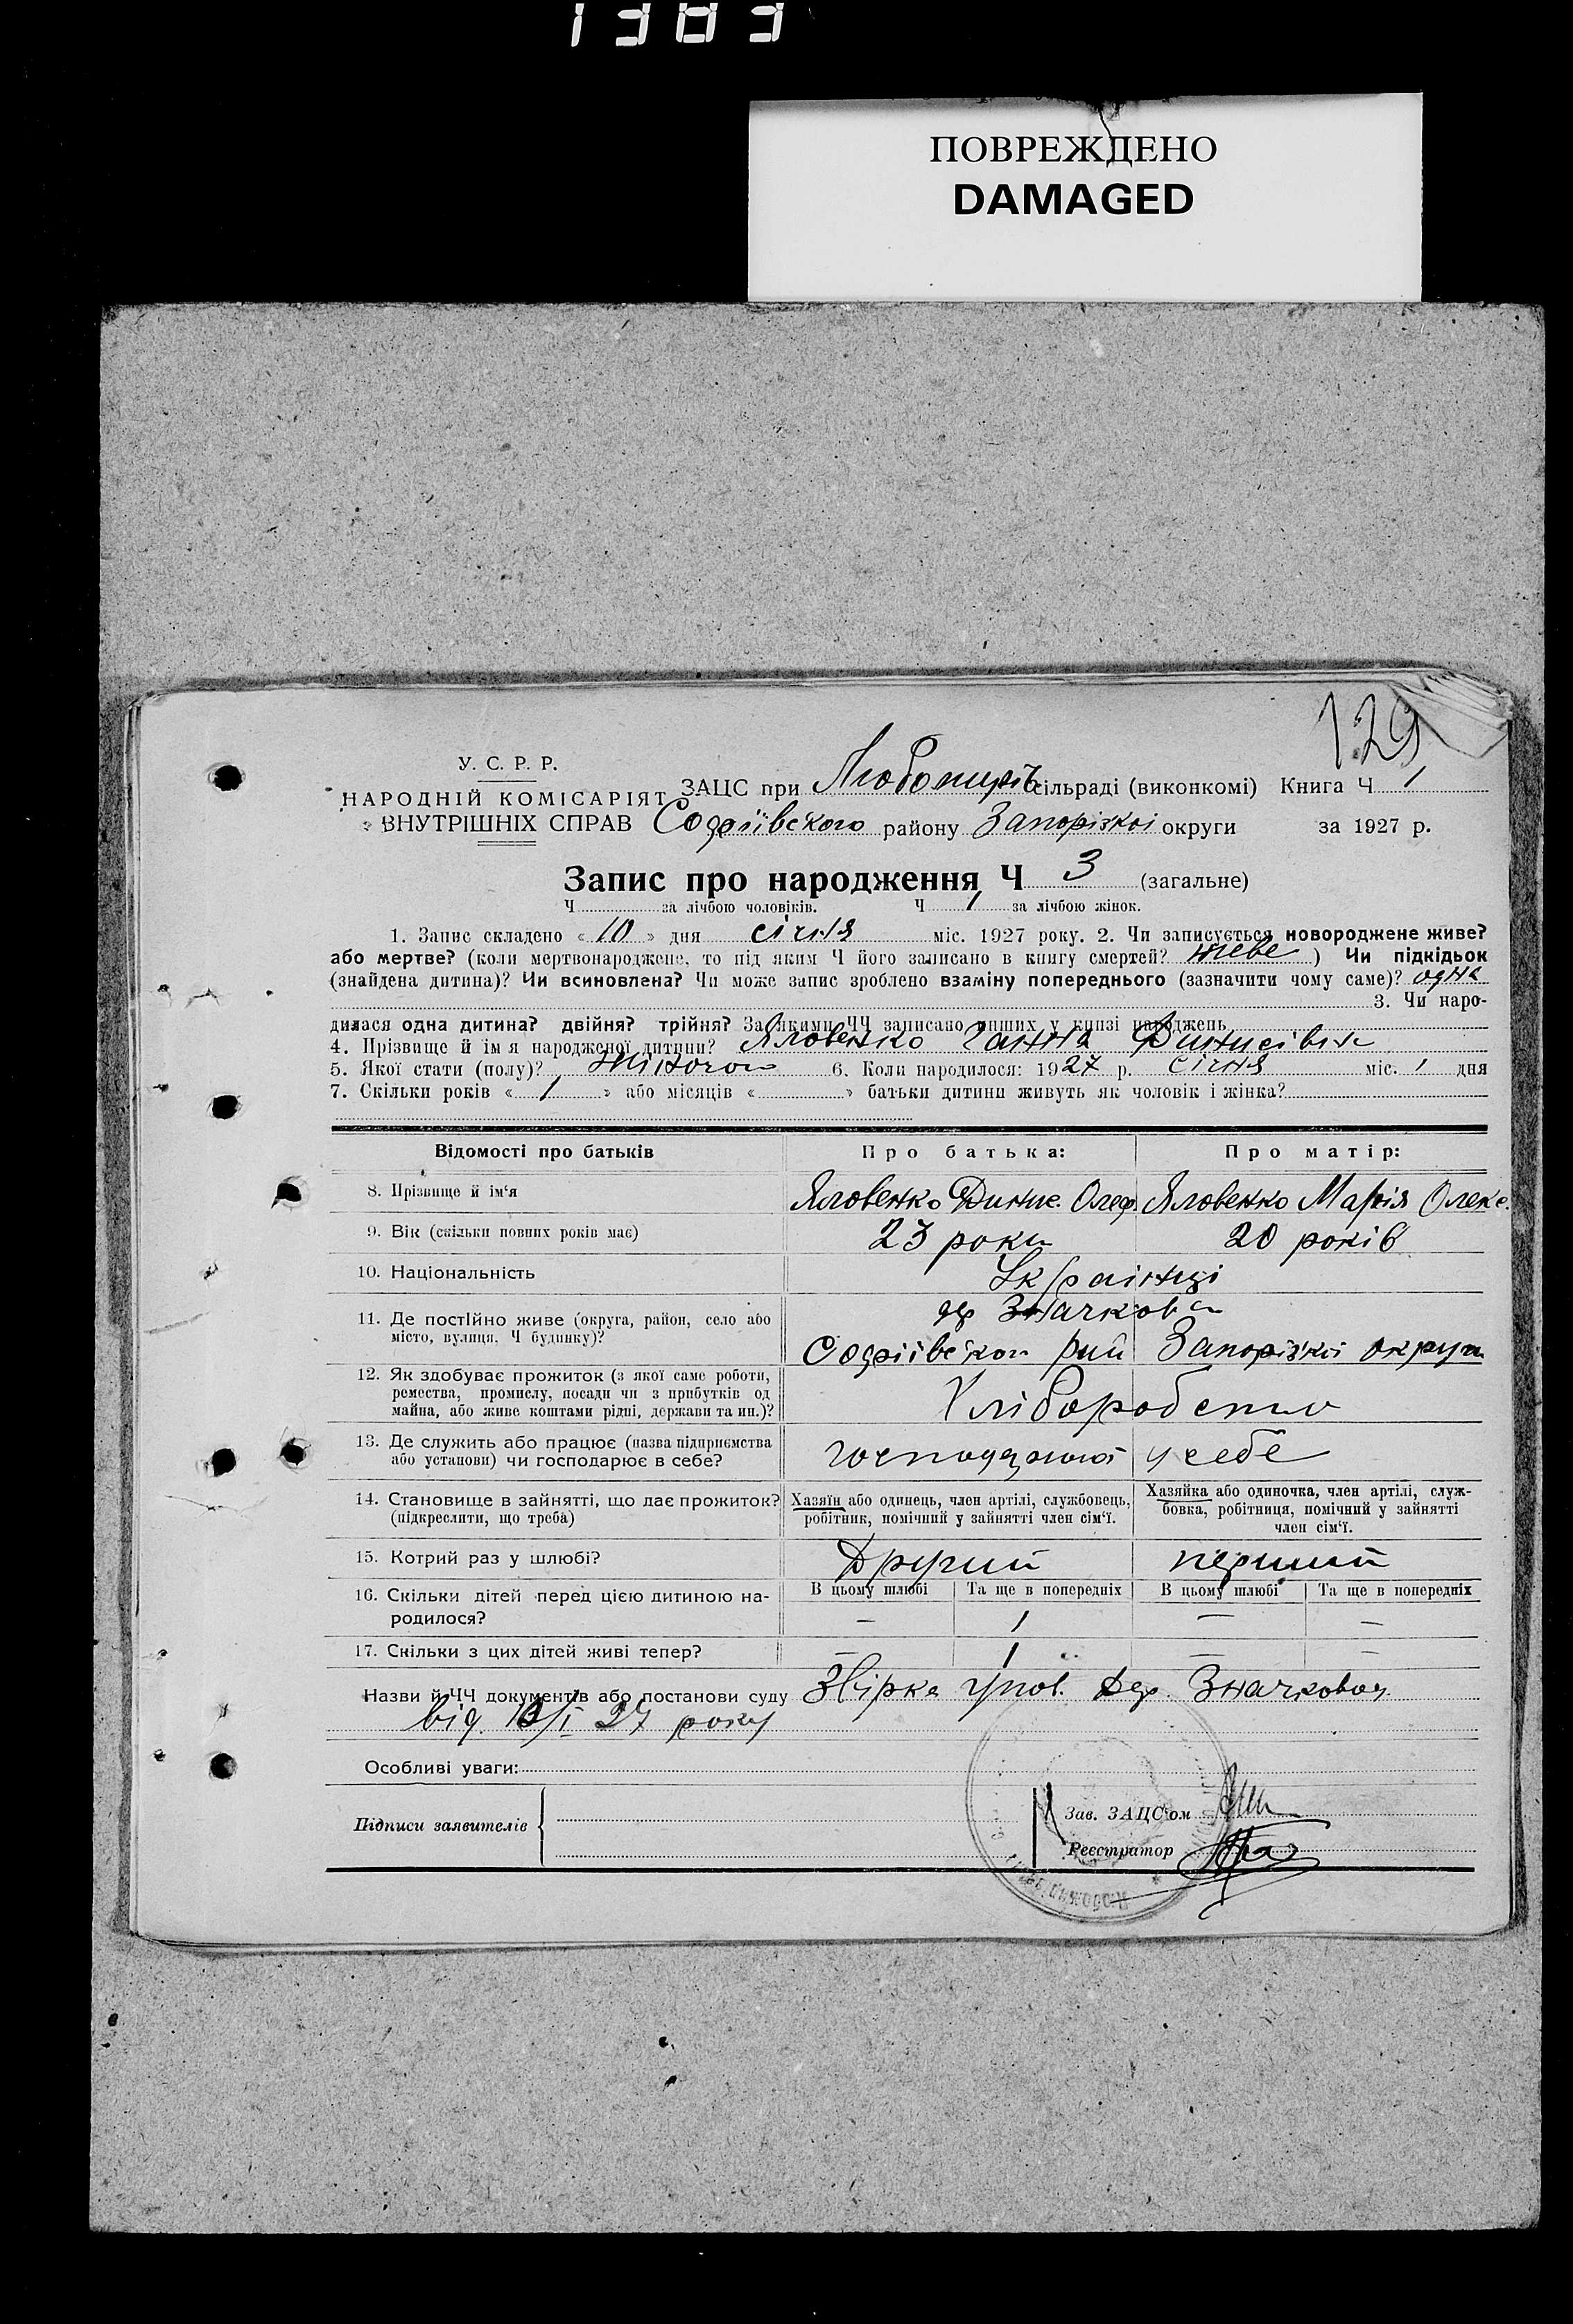 1383
ПОВРЕЖДЕНО
DAMAGED
129
У. С. Р. Р.
НАРОДНІЙ КОМІСАРІЯТ
ВНУТРІШНІХ СПРАВ
ЗАЦС при сільраді (виконкомі) Книга Ч 1
Софіївского району Запорізкоі округи за 1927 р.
Запис про народження Ч 3 (загальне)
Ч за лічбою чоловіків. Ч 1 за лічбою жінок.
1. Запис складено « 10 » дня січня міс. 1927 року. 2. Чи записується новороджене живе?
або мертве? (коли мертвонароджене, то під яким Ч його записано в книгу смертей? живе ) Чи підкідьок
(знайдена дитина)? Чи всиновлена? Чи може запис зроблено взаміну попереднього (зазначити чому саме)? одна
3. Чи наро-
дилася одна дитина? двійня? трійня? За якими ЧЧ записано инших у книзі народжень
4. Прізвище й ім я народженої дитини? Яловенко Ганна
5. Якої стати (полу)? 6. Коли народилося: 1927 р. січня міс. 1 дня
7. Скільки років « 1 » або місяців « » батьки дитини живуть як чоловік і жінка?
Відомості про батьків Про батька: Про матір:
8. Прізвище й ім‘я Яловенко Олеф. Яловенко Марія Олекс.
9. Вік (скільки повних років має) 23 роки 20 років
10. Національність Українці
11. Де постійно живе (округа, район, село або
місто, вулиця, Ч будинку)?
дер Значкова
Софіївскои рай Запорізкоі округи
12. Як здобуває прожиток (з якої саме роботи,
ремества, промислу, посади чи з прибутків од
майна, або живе коштами рідні, держави та ин.)?
Хліборобство
13. Де служить або працює (назва підприємства
або установи) чи господарює в себе?
у себе
14. Становище в зайнятті, що дає прожиток?
(підкреслити, що треба)
Хазяїн або одинець, член артілі, службовець,
робітник, помічний у зайнятті член сім‘ї.
Хазяйка або одиночка, член артілі, служ-
бовка, робітниця, помічний у зайнятті
член сім‘ї.
15. Котрий раз у шлюбі? Другий перший
16. Скільки дітей перед цією дитиною на-
родилося?
В цьому шлюбі Та ще в попередніх В цьому шлюбі Та ще в попередніх
— 1 — —
17. Скільки з цих дітей живі тепер? — 1 — —
Назви й ЧЧ документів або постанови суду Звірка упов. дер. Значковой
від 10/I 27 року
Особливі уваги:
Підписи заявителів
Зав. ЗАЦС‘ом
Реєстратор